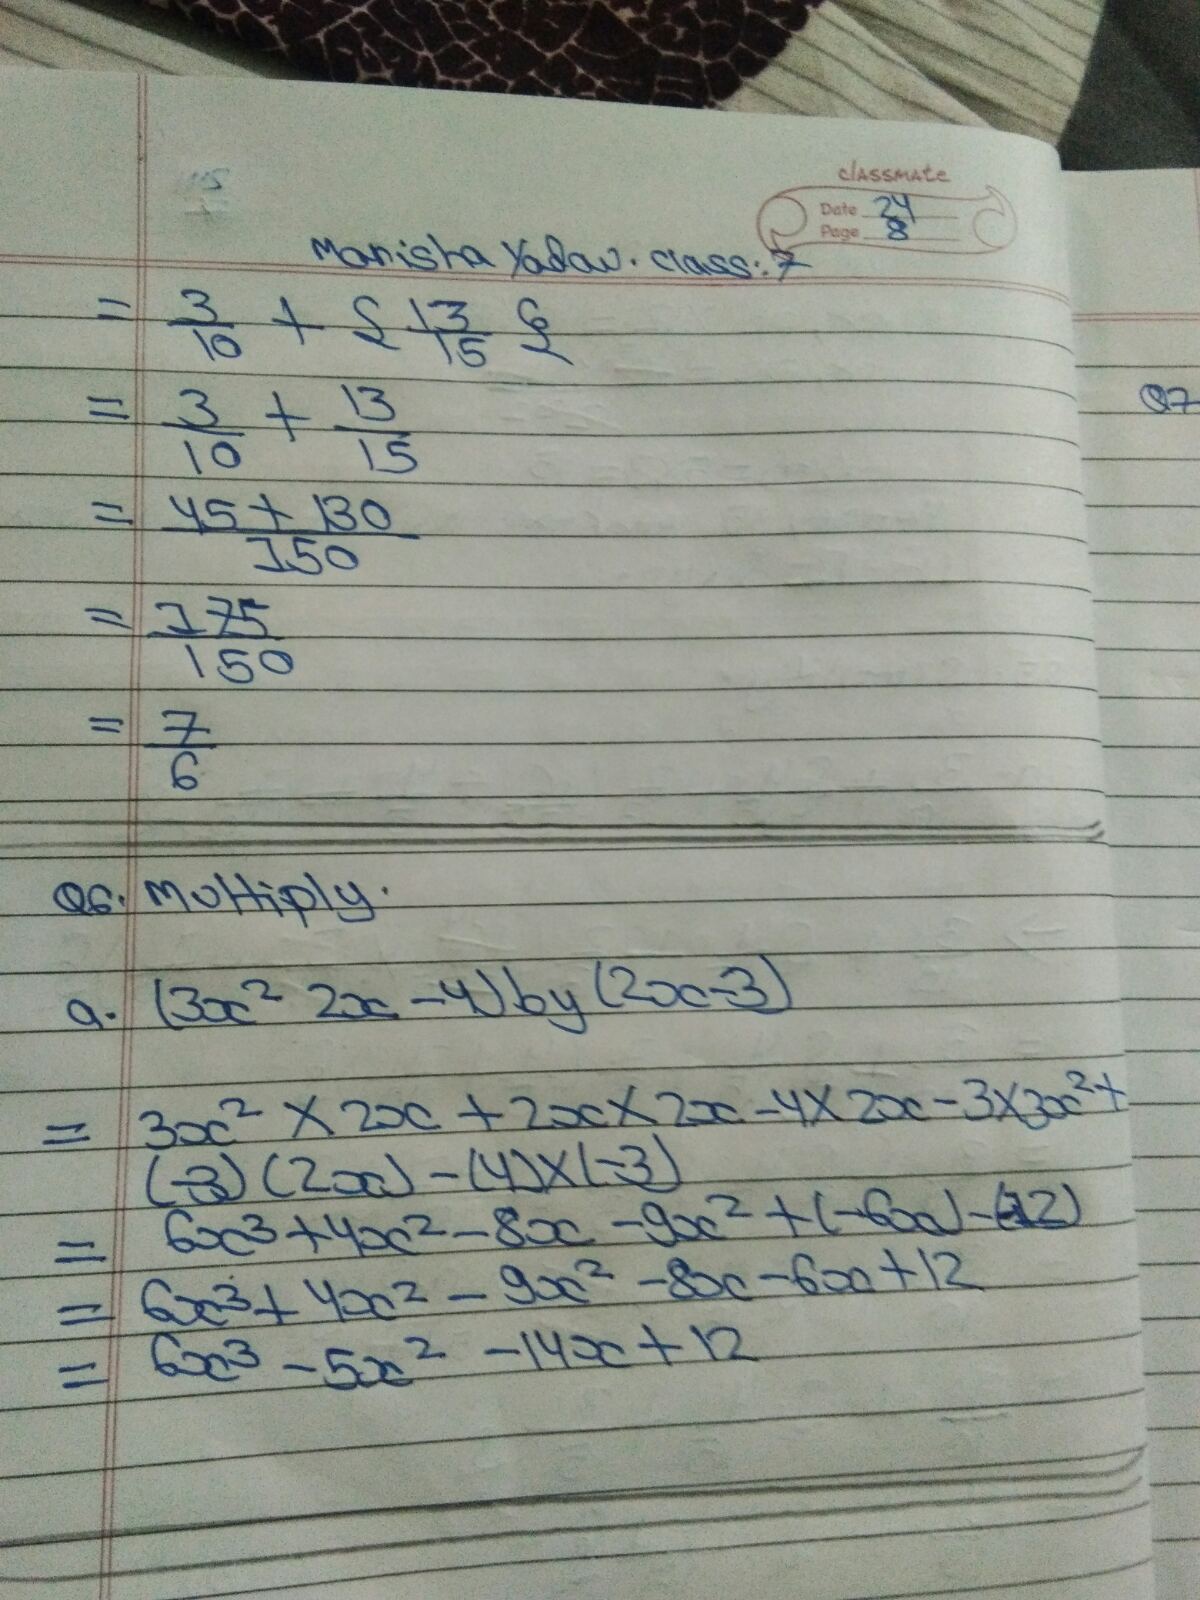 classmate
Date 24
Page 8
Manisha Yadav. class: 7
= 3/10 + { 13/15 }
= 3/10 + 13/15
= 45 + 130 / 150
= 175/150
= 7/6
Q6. Multiply.
a. (3x² 2x - 4) by (2x-3)
= 3x² × 2x + 2x × 2x - 4 × 2x - 3 × 3x² +
(-3) (2x) - (4) × (-3)
= 6x³ + 4x² - 8x - 9x² + (-6x) - (12)
= 6x³ + 4x² - 9x² - 8x - 6x + 12
= 6x³ - 5x² - 14x + 12
Q7